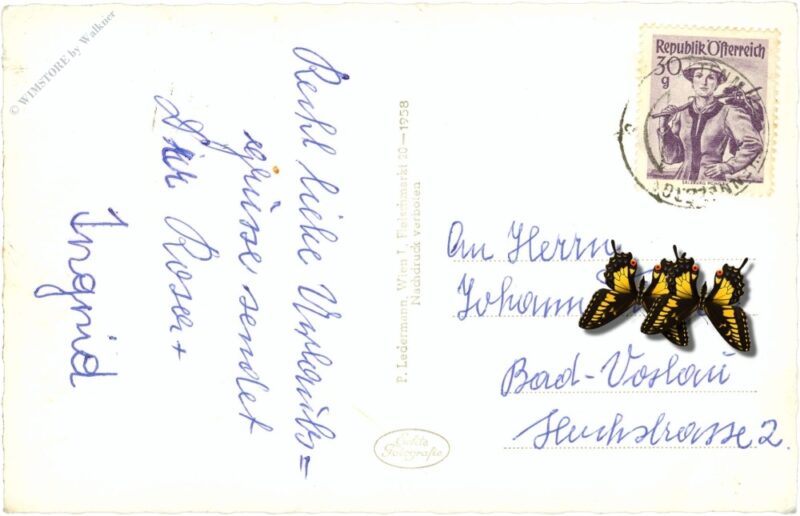 © WIMSTORE by Walkner
Recht liebe Urlaubs=
grüsse sendet
Dir Roser+
Ingrid
P. Ledermann, Wien I, Fleischmarkt 20—1958
Nachdruck verboten
Echte
Fotografie
Republik Österreich
30
g
An Herrn
Johann
Bad-Voslau
Huchstrasse 2.